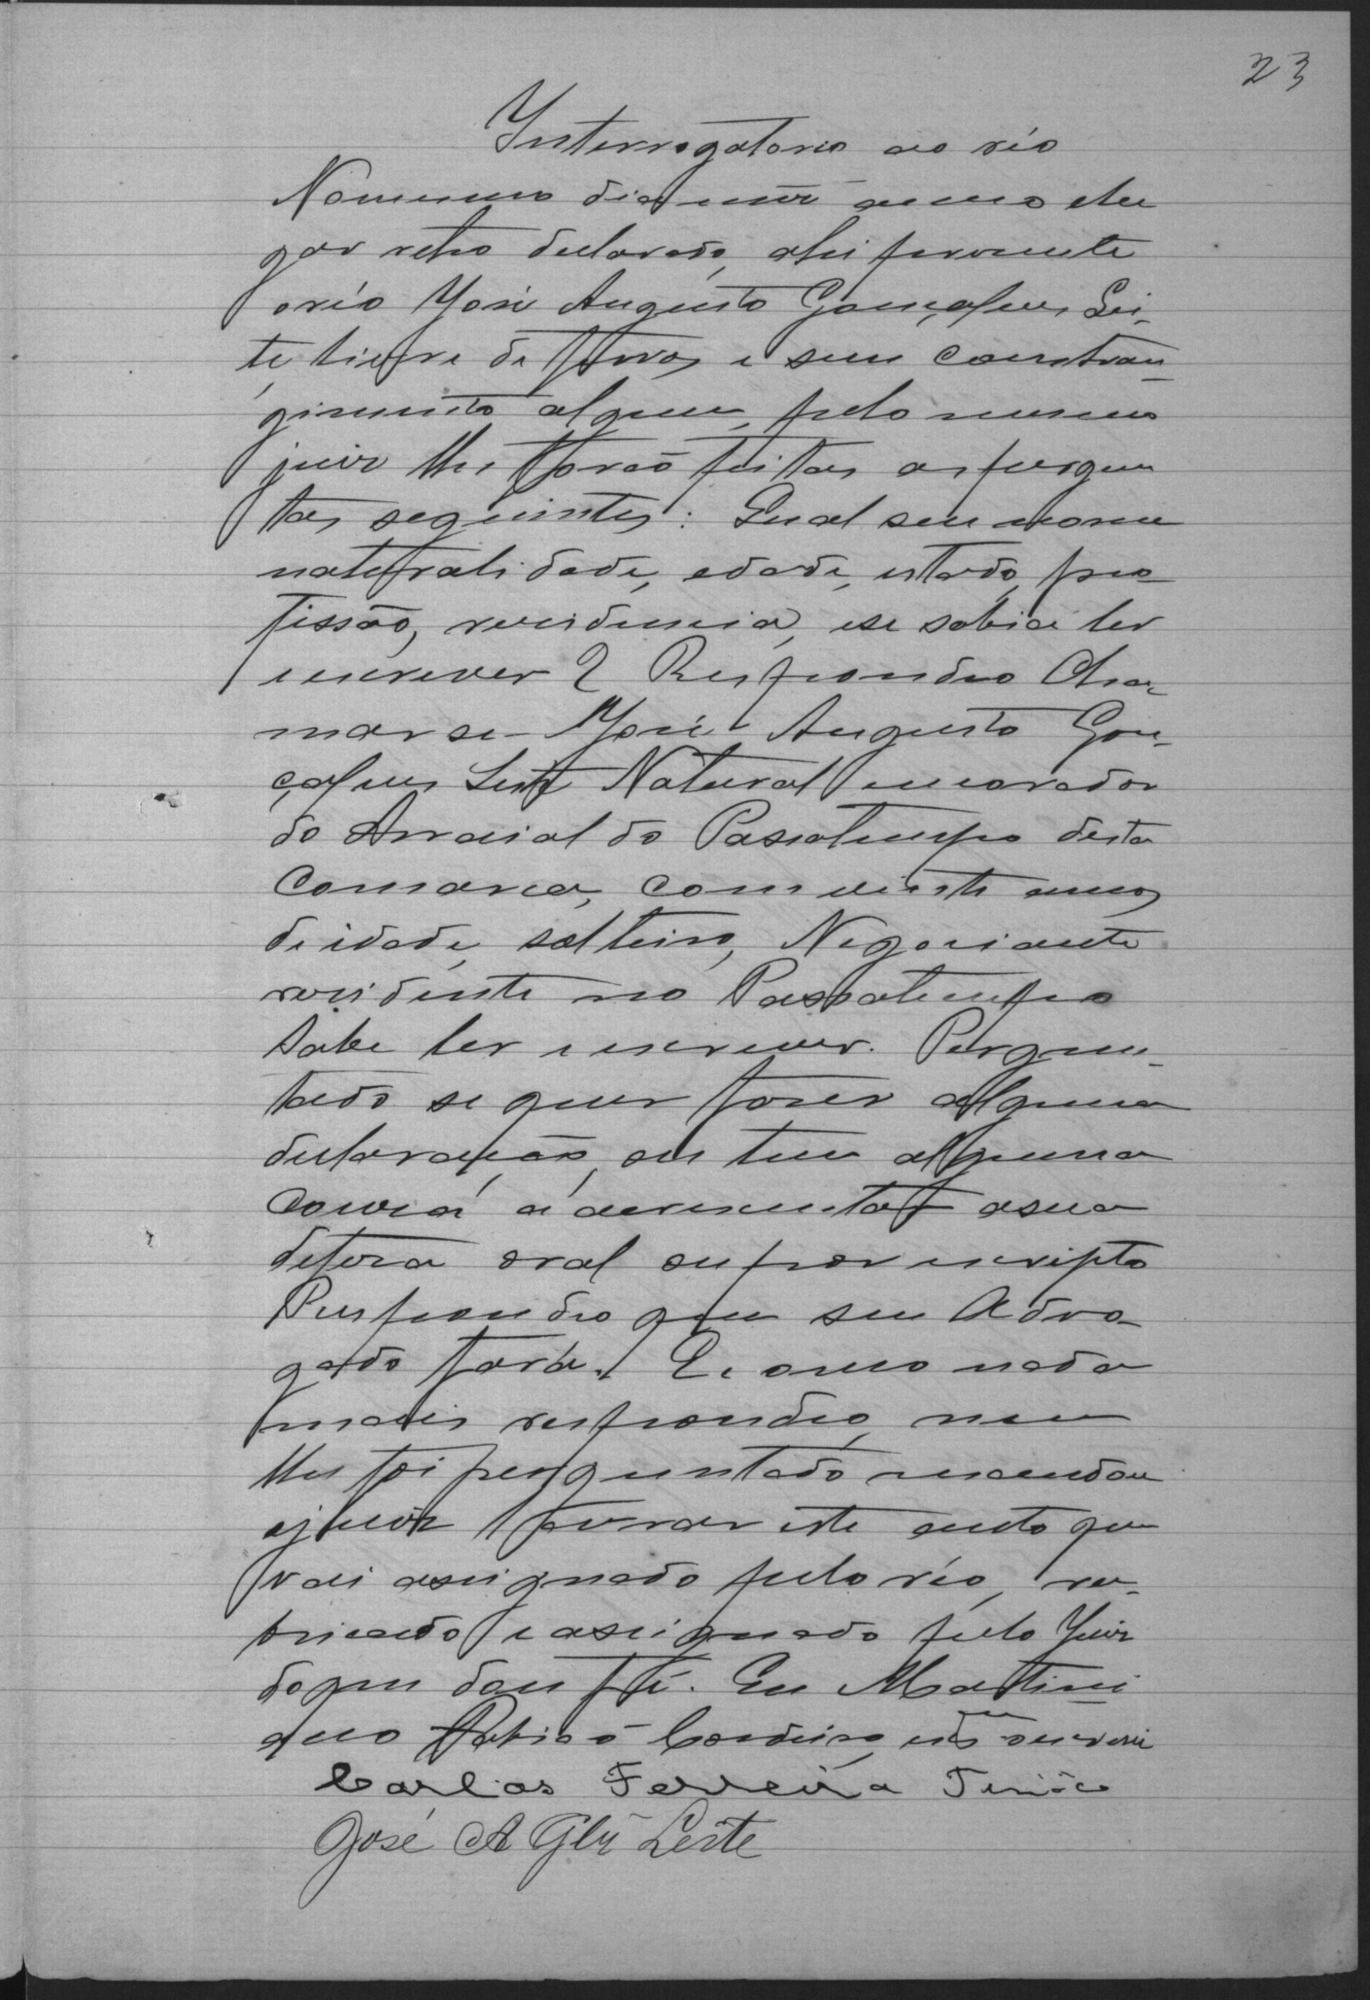 23
Interrogatorio ao réo
No mesmo dia mez anno e lu
gar retro declarado, ahi presente
o réo José Augusto Gonçalves Lei-
te, livre de ferros e sem constran-
gimento algum, pelo mesmo
juiz lhe forão feitas as pergun
tas seguintes: Qual seu nome
naturalidade, edade, estado, pro-
fissão, residencia, e se sabia ler
e escrever? Respondeo Cha-
mar se José Augusto Gon-
çalves Leite Natural e morador
do Arraial do Passatempo desta
Comarca, com vinte annos
de idade, solteiro, Negociante
residente no Passatempo
Sabe ler e escrever. Pergun-
tado se quer fazer alguma
declaração, ou tem alguma
couza á accrescentar a sua
defeza oral ou por escripto
Respondeo que seu Advo-
gado fará. E como nada
mais respondeo, nem
lhe foi perguntado mandou
o juiz lavrar este auto que
vai assignado pelo réo, ru-
bricado e assignado pelo Juiz
do que dou fé. Eu Martini
ano Cordeiro, escrivão o escrevi
Carlos Ferreira Tinôco
José A Glz Leite